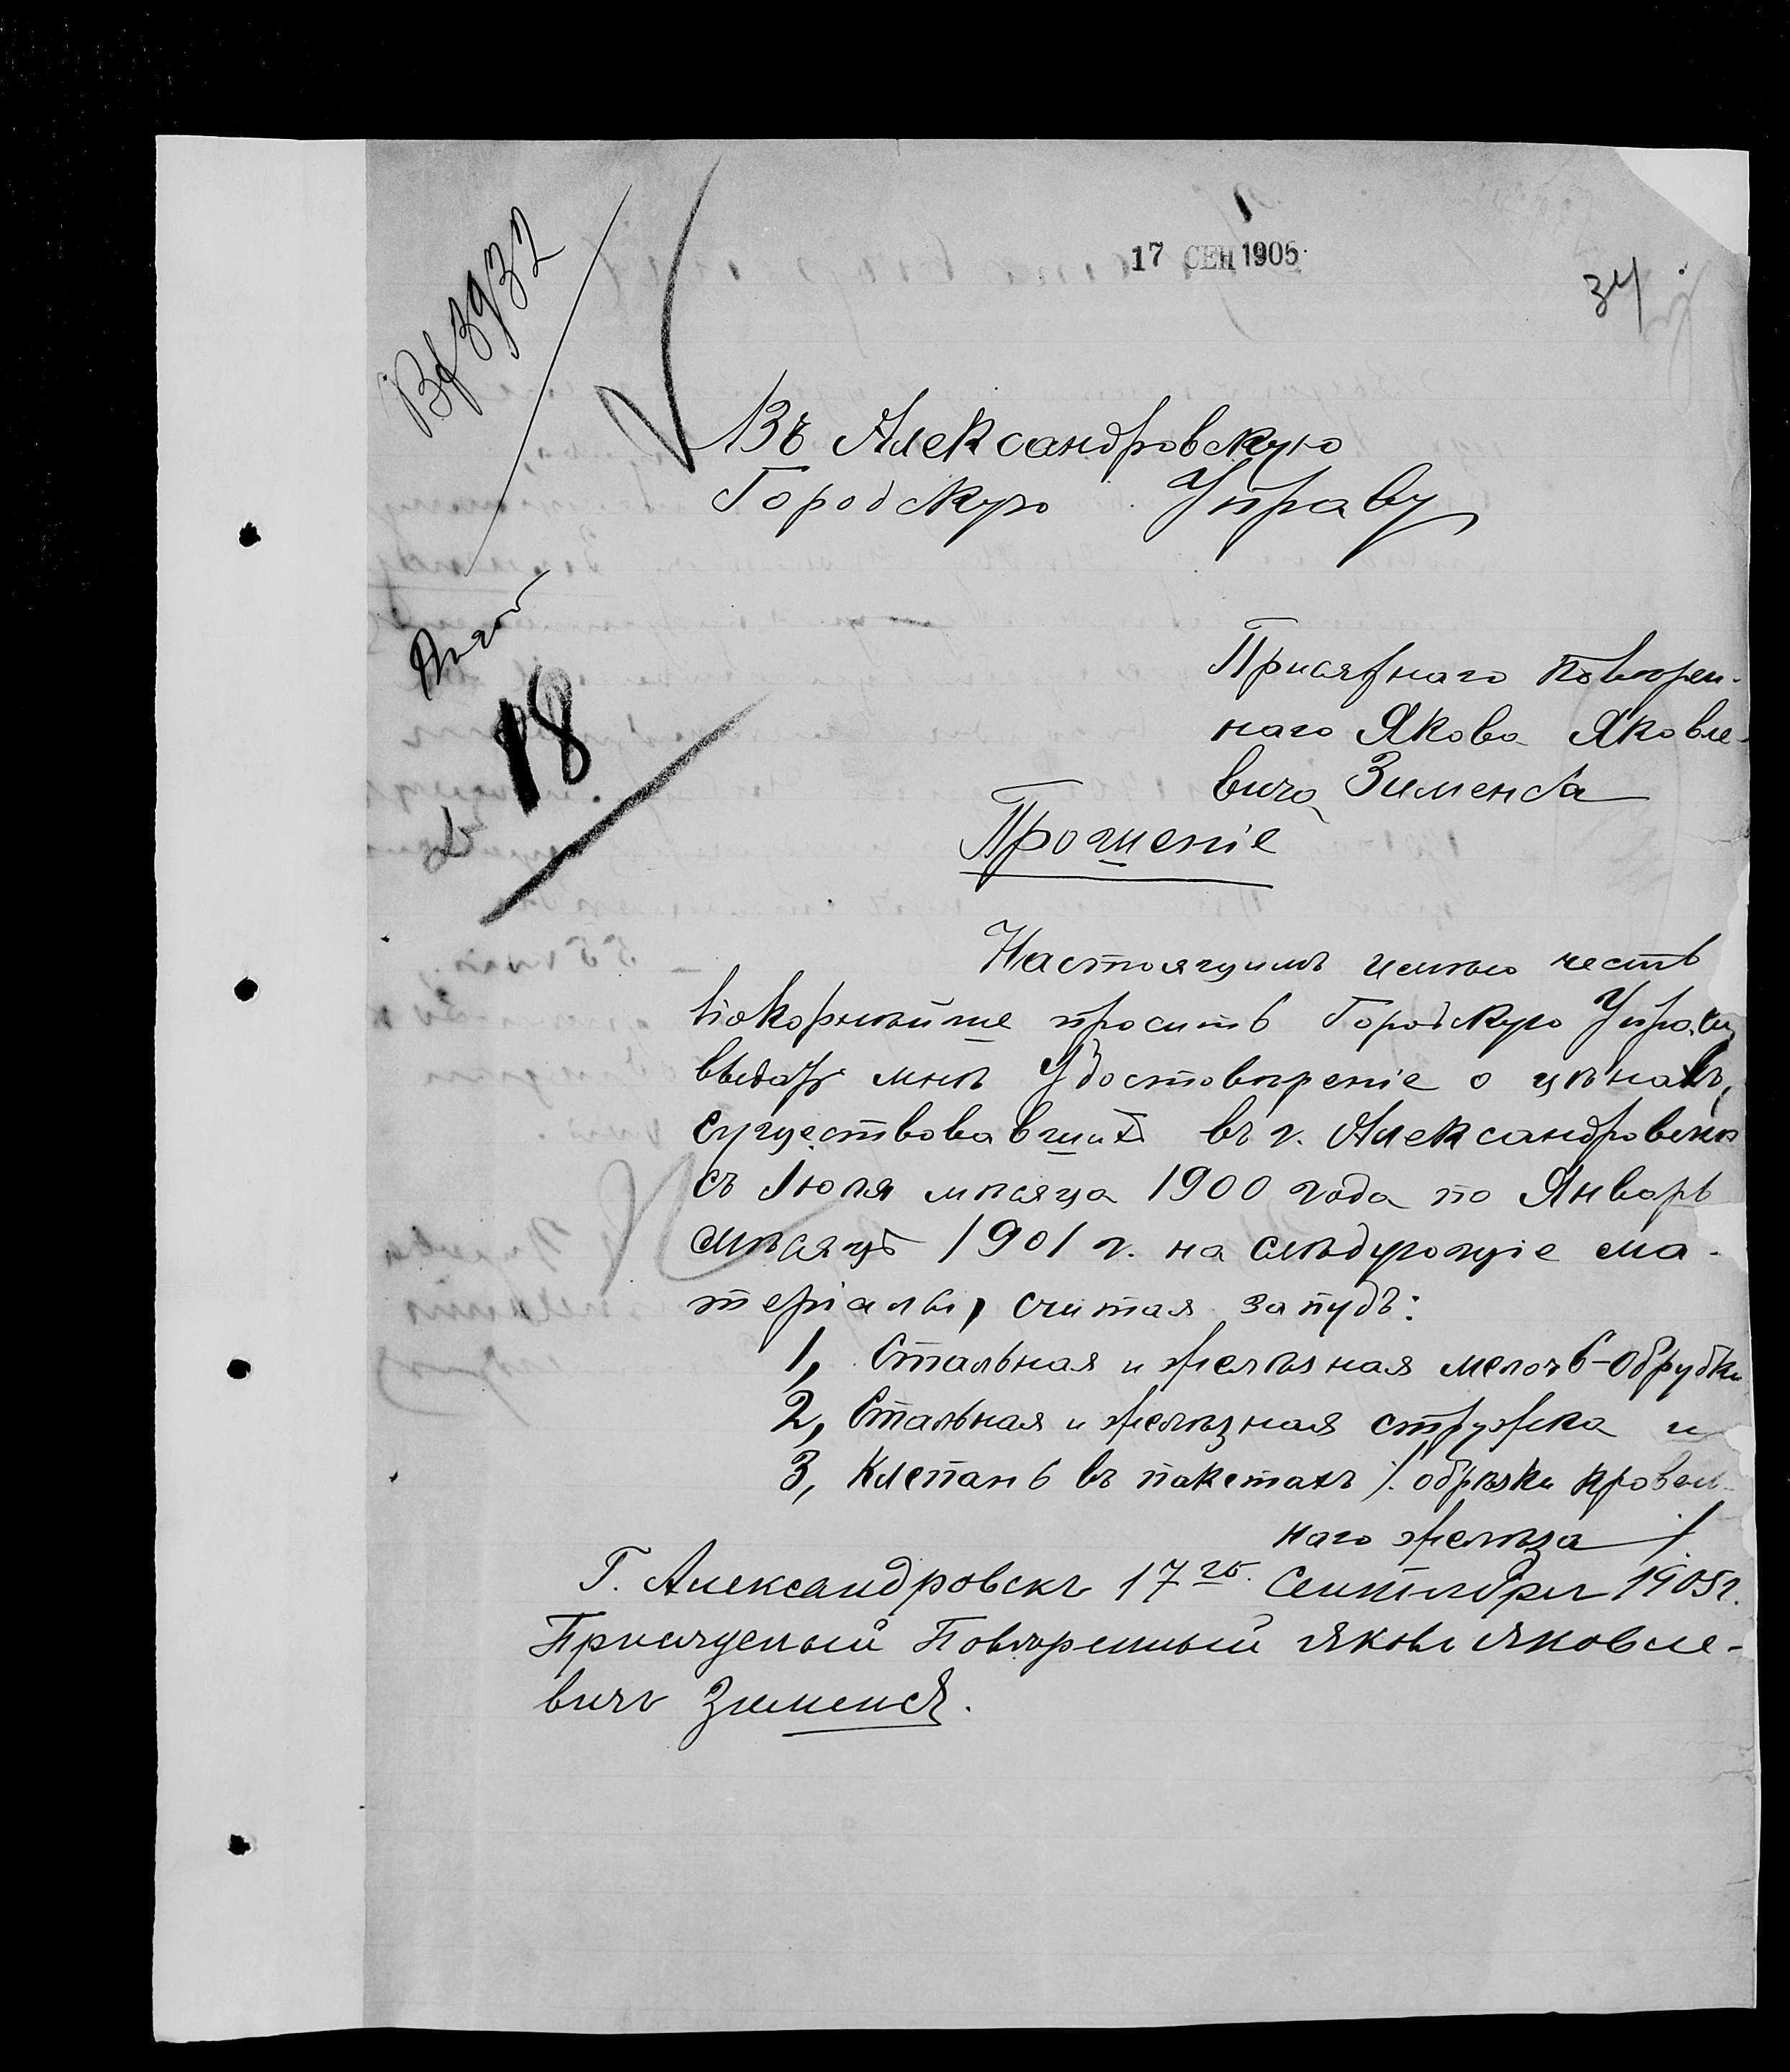 17 СЕН 1905
34
Вх 3932
18
Въ Александровскую
Городскую Управу
Присяжнаго Поверен-
наго Якова Яковле-
вича Зименса
Прошеніе
Настоящимъ имѣю честь
покорнѣйше просить Городскую Управу
выдать мнѣ Удостовѣреніе о цѣнахъ,
существовавшихъ въ г. Александровскѣ
съ Іюля мѣсяца 1900 года по Январь
мѣсяцъ 1901 г. на слѣдующіе ма-
теріалы, считая за пудъ:
1, Стальная и желѣзная мелочь-Обрубки
2, Стальная и желѣзная стружка и
3, Клепань въ пакетахъ /. обрѣзки кровель-
наго желѣза ./
Г. Александровскъ 17го Сентября 1905г.
Присяжный Повѣренный Яковъ Яковле-
вичъ Зименсъ.